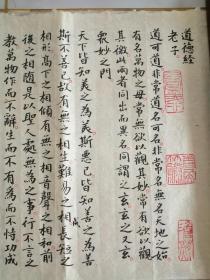 道德經
老子
道可道非常道名可名非常名無名天地之始
有名萬物之母常無欲以觀其妙常有欲以觀
其徼此兩者同出而異名同謂之玄玄之又玄
衆妙之門
天下皆知美之為美斯惡已皆知善之為善
斯不善已故有無之相生難易之相成長短之
相形高下之相傾音聲之相和前
後之相隨是以聖人處無為之事行不言之
教萬物作而不辭生而不有為而不恃功成